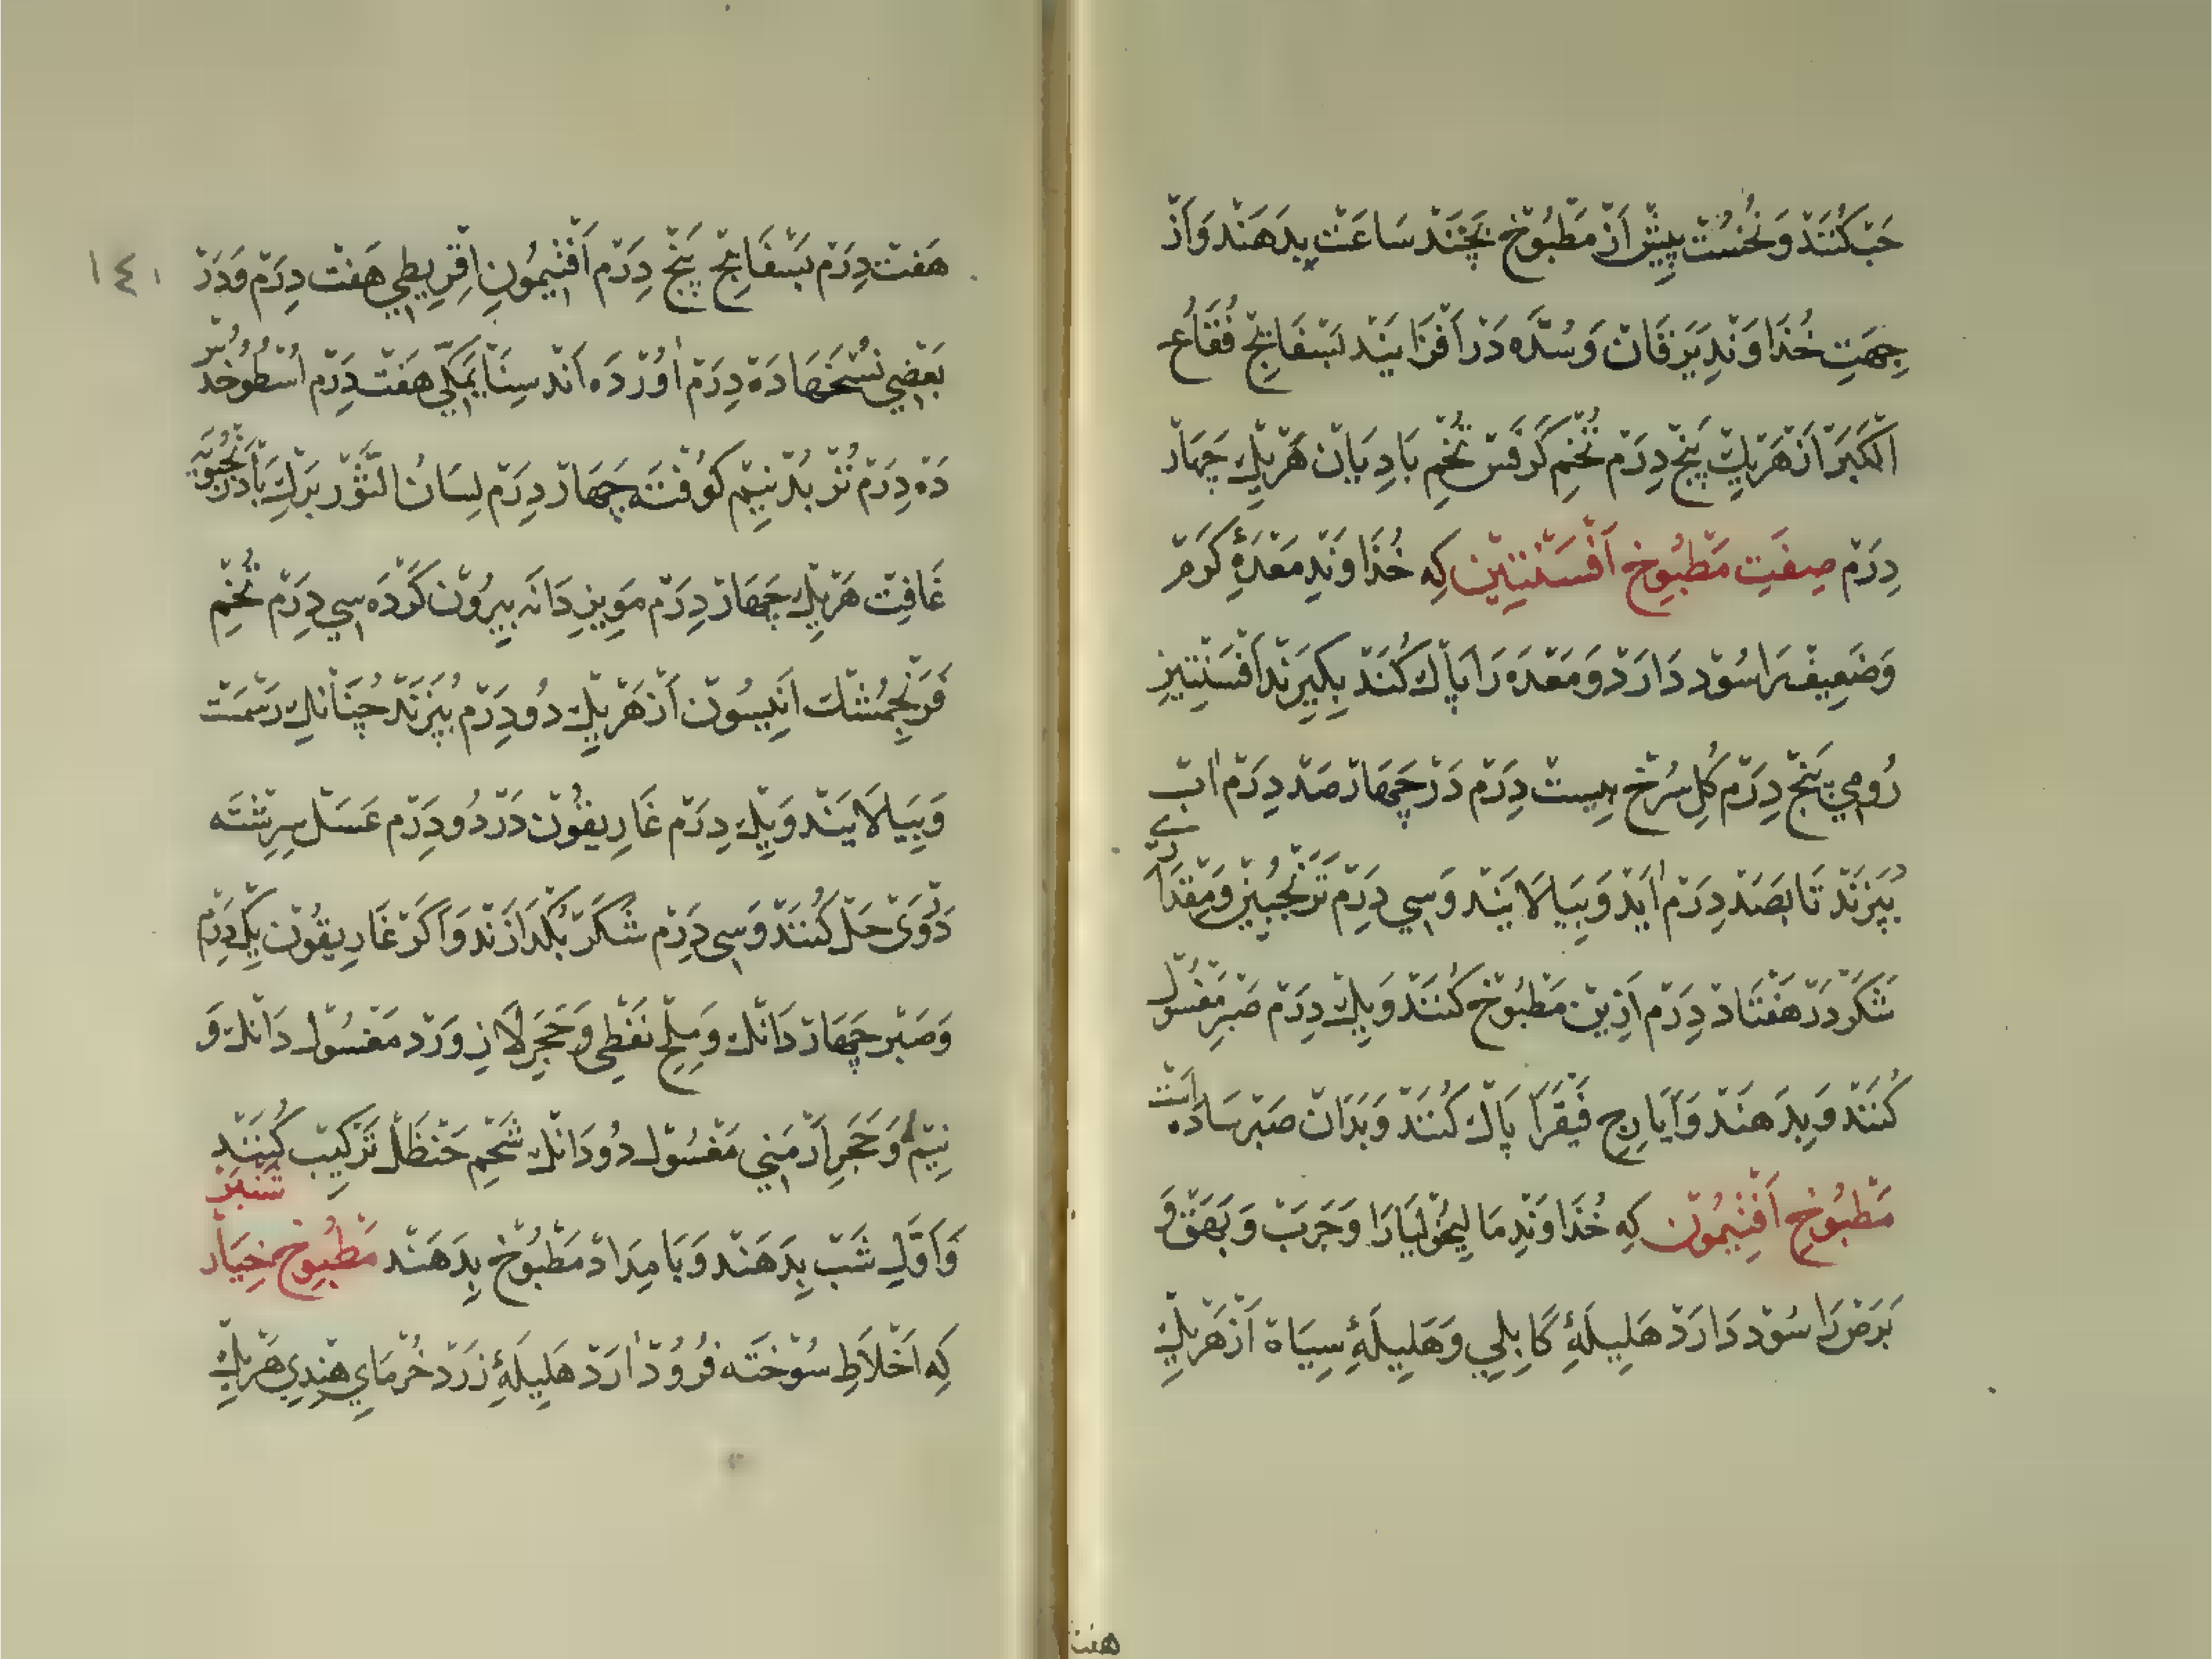 حَبْ كُنَنَدْ وَنُخُسْتْ پِيشْ اَزْ مَطْبُوخْ بَچَنْد سَاعَتْ بِدَهَنْد وَاَزْ
جِهَتِ خُدَاوَنْدِ يَرَقَانْ وَسُدَّه دَرْ اَفْزَايَنْد بَسْفَايَجْ فُقَّاعْ
اَلْكَبَرْ اَزْ هَرْيِكْ پَنْجْ دِرَمْ تُخْمِ كَرَفْسْ تُخْمِ بَادِيَانْ هَرْيِكْ چَهَارْ
دِرَمْ صِفَتِ مَطْبُوخِ اَفْسَنْتِيْنْ كِه خُدَاوَنْدِ مَعْدَۀِ كَرَمْ
وَضَعِيفْ رَا سُوْد دَارَدْ وَمَعْدَه رَا پَاكْ كُنَدْ بِكِيرَنْد اَفْسَنْتِينِ
رُومِي پَنْجْ دِرَمْ كُلِ سُرْخْ بِيسْتْ دِرَمْ دَرْ چَهَارْصَدْ دِرَمْ اٰبْ
بِپَزَنْد تَا بصَدْ دِرَمْ اٰيَدْ وَبِيَالَايَنْد وَسِي دِرَمْ تَرَنْجُبِينْ وَمِقْدَارِي
شَكَرْ دَرْ هَفْتَادْ دِرَمْ اَزِينْ مَطْبُوخْ كُنَنَدْ وَيِكْ دِرَمْ صَبْرِ مَغْسُولْ
كُنَنْد وَبِدَهَنْد وَاَيَارِجِ فَيْقَرَا پَاكْ كُنَنَدْ وَبَدَانْ صَبْرِ سَادَه اسْتْ
مَطْبُوخِ اَفْتِيمُونْ كِه خُدَاوَنْدِ مَالِيخُولِيَا رَا وَجَرَبْ وَبَهَقْ وَ
بَرَصْ رَا سُوْد دَارَدْ هَلِيلَهٔ كَابِلِي وَهَلِيلَهٔ سِيَاهْ اَزْ هَرْيِكْ
هفت
هَفْتْ دِرَمْ بَسْفَايَجْ پَنْجْ دِرَمْ اَفْتِيمُونِ اِقْرِيطِي هَفْتْ دِرَمْ وَدَرْ
١٤٠
بَعْضِي نُسْخَهَا دَهْ دِرَمْ اٰوُرْدَه اَنْد سِنَايِ مَكِّي هَفْتْ دِرَمْ اُسْطُوخُدُوسْ
دَه دِرَمْ تُرْبُدْ نِيمْ كُوفْتَه چَهَارْ دِرَمْ لِسَانُ الثَّوْرْ بَرْكِ بَادْرَنْجُبُويَه
غَافِتْ هَرْيِكْ چَهَارْ دِرَمْ مَوِيزِ دَانَه بِيرُونْ كَرْدَه سِي دِرَمْ تُخْمِ
فَرَنْجِمُشْكْ اَنِيسُونْ اَزْ هَرْيِكْ دُو دِرَمْ بِپَزَنْد چُنَانْكِ رَسْمَتْ
وَبِيَالَايَنْد وَيِكْ دِرَمْ غَارِيقُونْ دَرْ دُو دِرَمْ عَسَلْ سِرِشْتَه
دَرْوَىْ حَلْ كُنَنَدْ وَسِى دِرَمْ شَكَرْ بُكْدَازَنْد وَاَكَرْ غَارِيقُونْ يِكْ دِرَمْ
وَصَبْرْ چَهَارْ دَانْكْ وَمِلْحِ نَفْطِي وَحَجَرِ لَازِوَرْد مَغْسُولْ دَانْكْ وَ
نِيمْ وَحَجَرِ اَرْمَنِي مَغْسُولْ دُو دَانْكْ شَحْمِ حَنْظَلْ تَرْكِيبْ كُنَنَدْ
وَاَوَّلِ شَبْ بِدَهَنْد وَبَامِدَادْ مَطْبُوخْ بِدَهَنْد مَطْبُوخِ خِيَارْ شَنْبَرْ
كِه اَخْلَاطِ سُوخْتَه فُرُودْ اٰرَدْ هَلِيلَهٔ زَرْد خُرْمَايِ هِنْدِي هَرْيِكْ